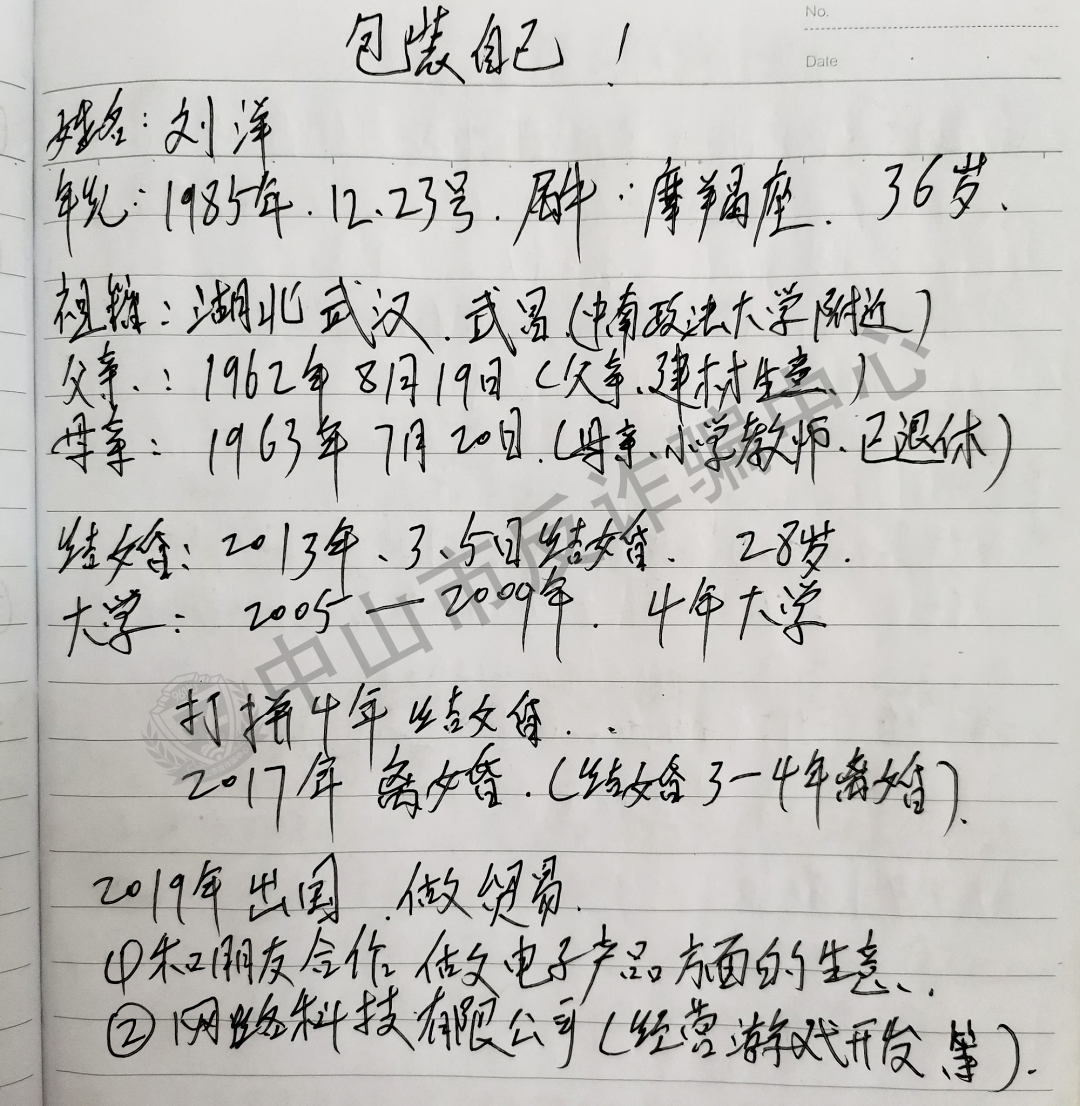 No.
Date
包装自己！
姓名：刘洋
年纪：1985年.12.23号.属牛：摩羯座. 36岁.
祖籍：湖北武汉.武昌(中南政法大学附近)
父亲.：1962年8月19日(父亲、建材生意.)
母亲：1963年7月20日.(母亲、小学教师.已退休)
结婚：2013年、3.5日结婚. 28岁.
大学：2005—2009年. 4年大学
打拼4年结婚..
2017年离婚.(结婚3-4年离婚).
2019年出国.做贸易.
①和朋友合作做电子产品方面的生意.
②网络科技有限公司(经营游戏开发等).
中山市反诈骗中心